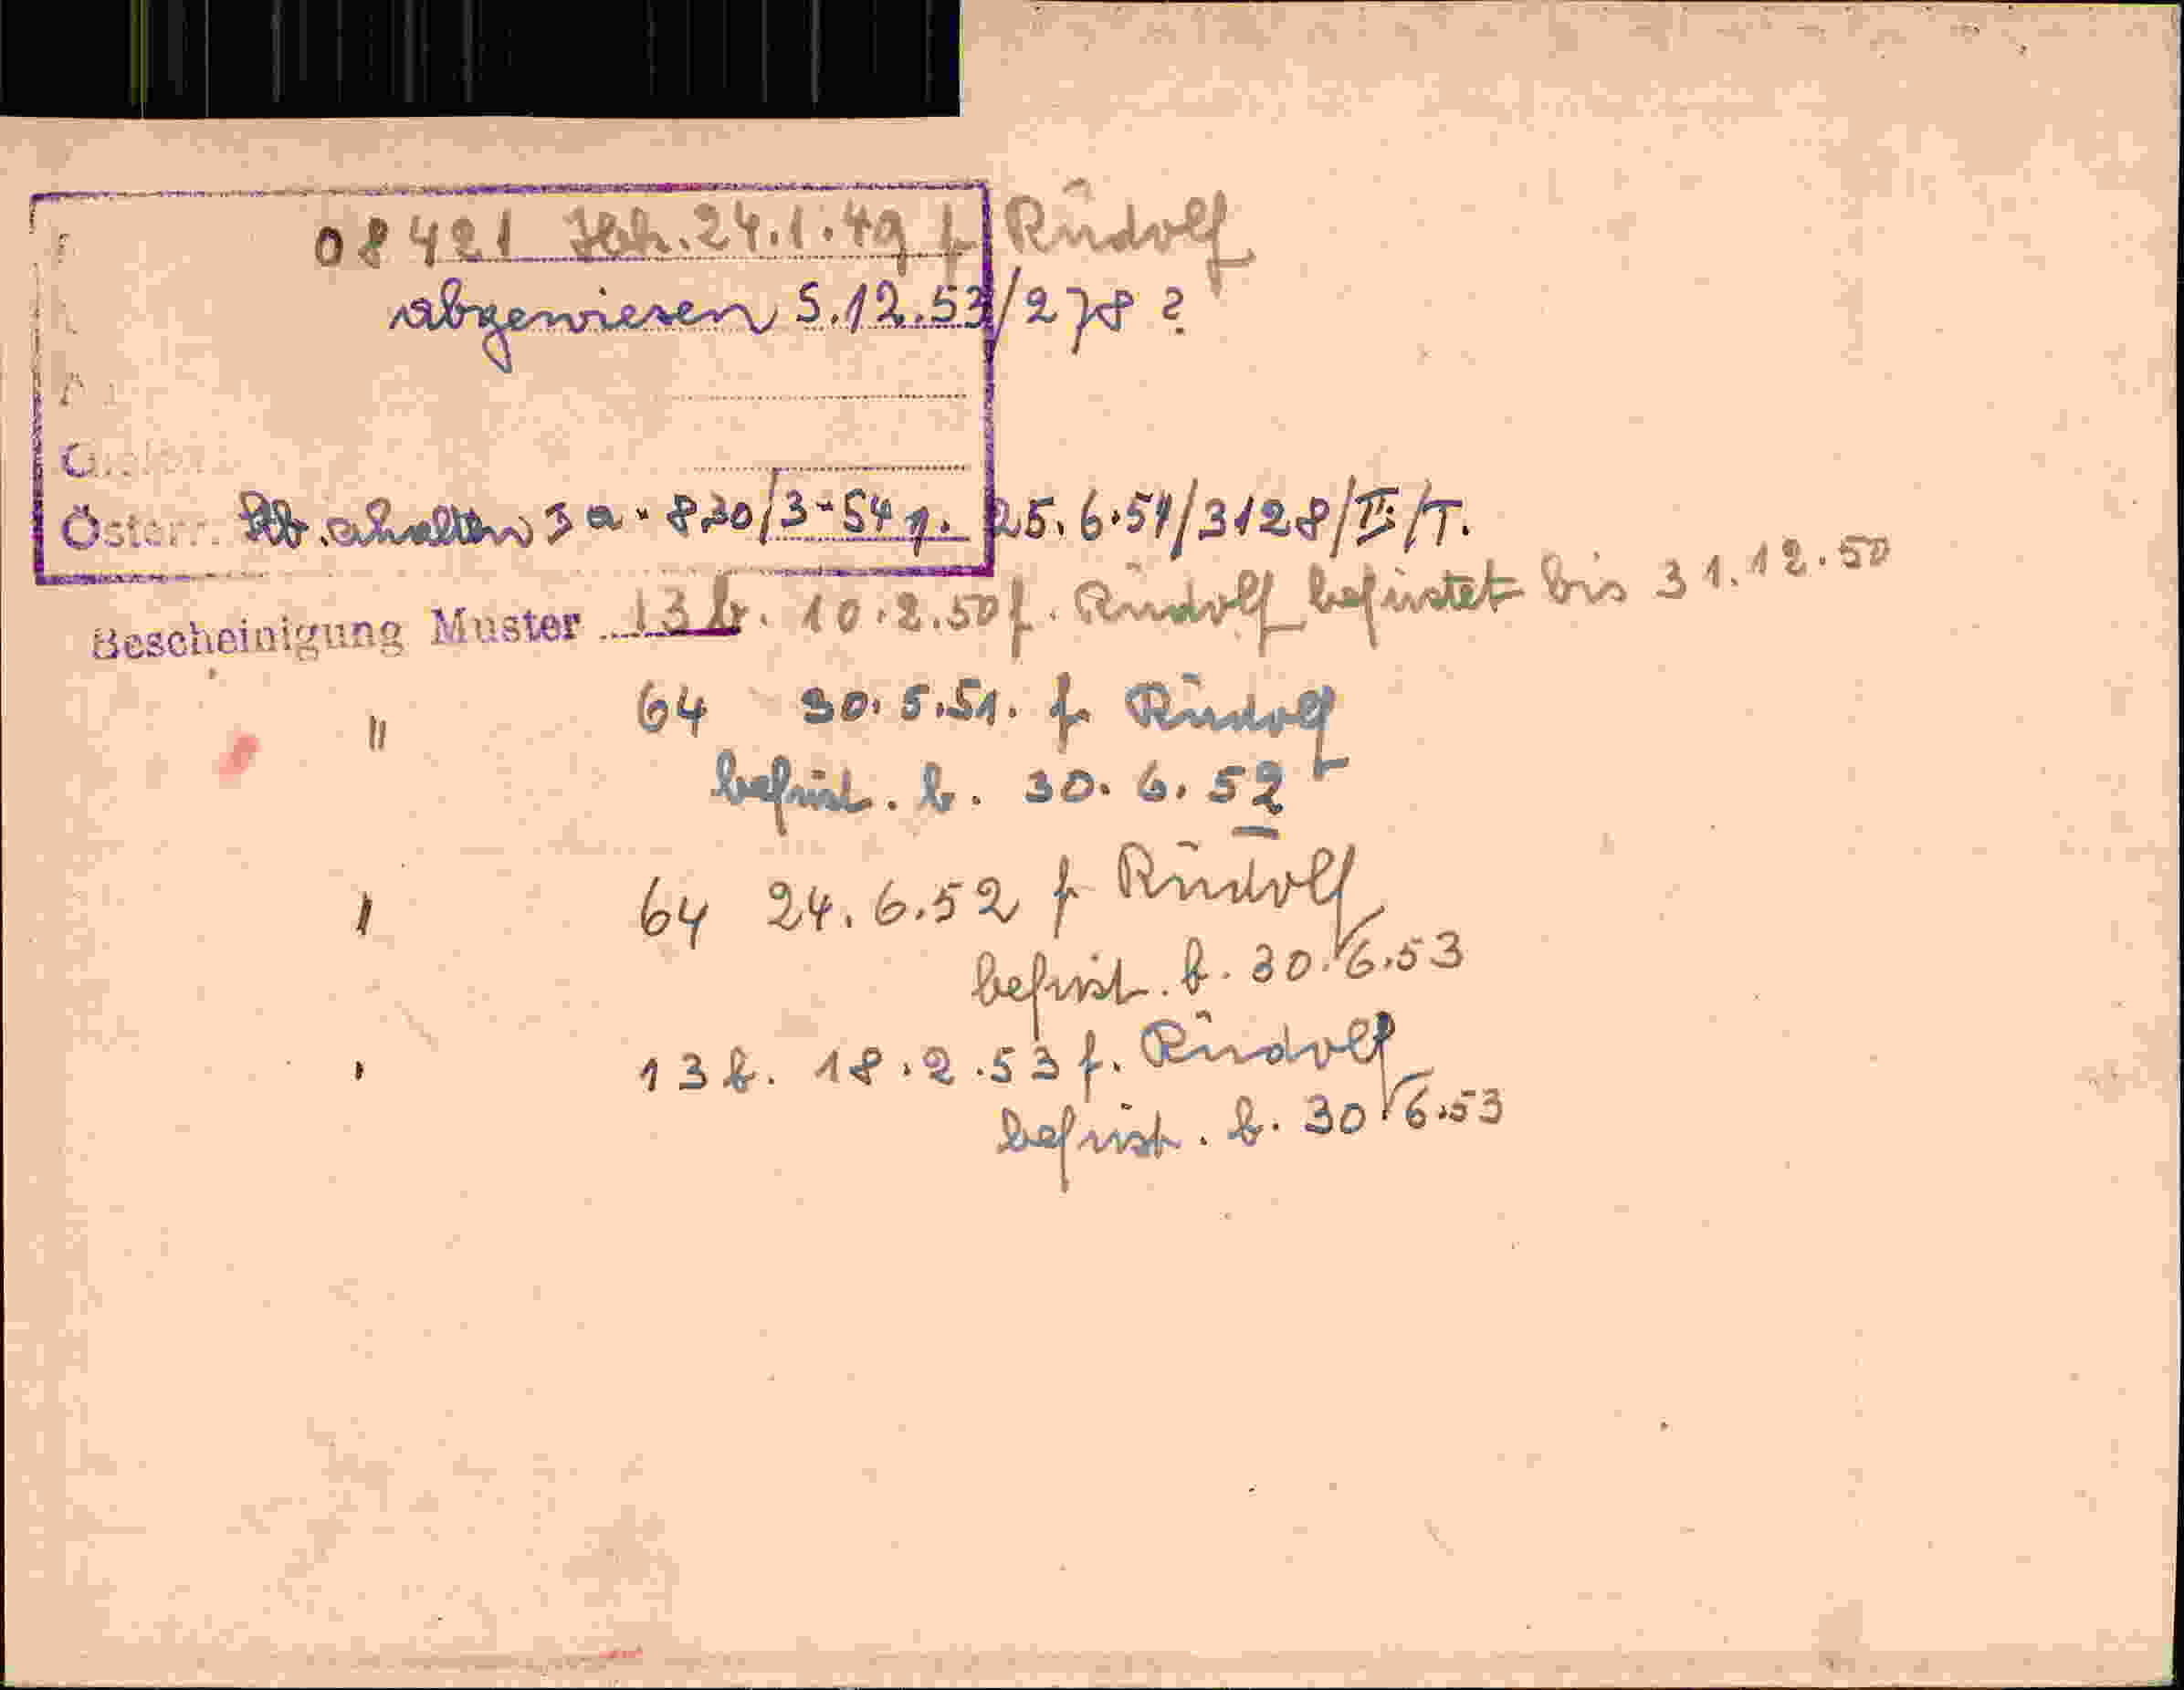 08421 24.1.49 f Rudolf
abgewiesen 5.12.53/278 ?
Österr. Stb. erhalten 3a-830/3-54 v. 25.6.54/3128/II/T.
Bescheinigung Muster 13b. 10.2.50 f. Rudolf befristet bis 31.12.50
" 64 30.5.51. f Rudolf
befrist. b. 30.6.52
" 64 24.6.52 f Rudolf
befrist. b. 30.6.53
" 13b. 18.2.53 f. Rudolf
befrist. b. 30.6.53